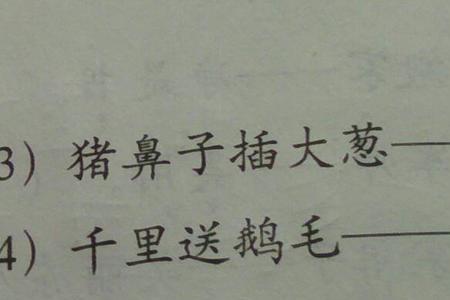 3）猪鼻子插大葱——
4）千里送鹅毛——